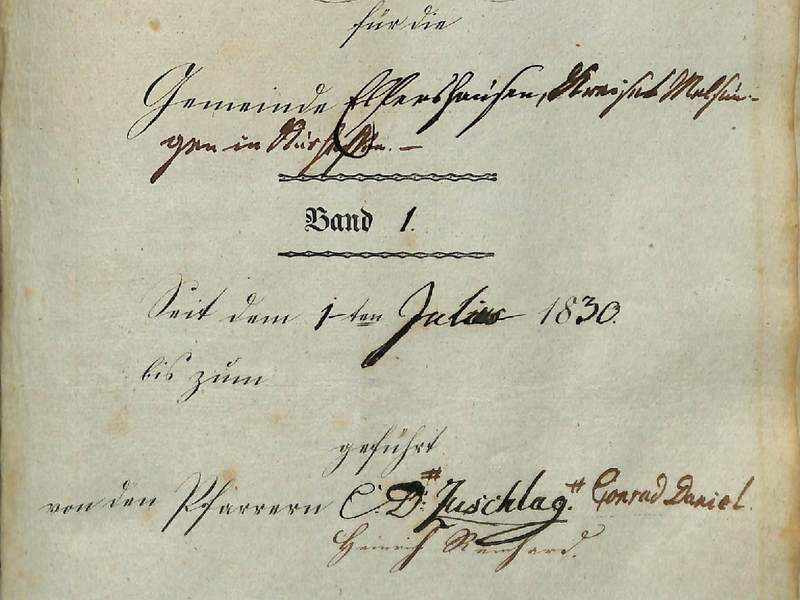 für die
Gemeinde Elfershausen, Kreises Melsun-
gen in Kurhessen. —
Band 1.
Seit dem 1-ten Julius 1830.
bis zum
geführt
von den Pfarrern C. D. # Zuschlag. # Conrad Daniel.
Heinrich Reinhard.